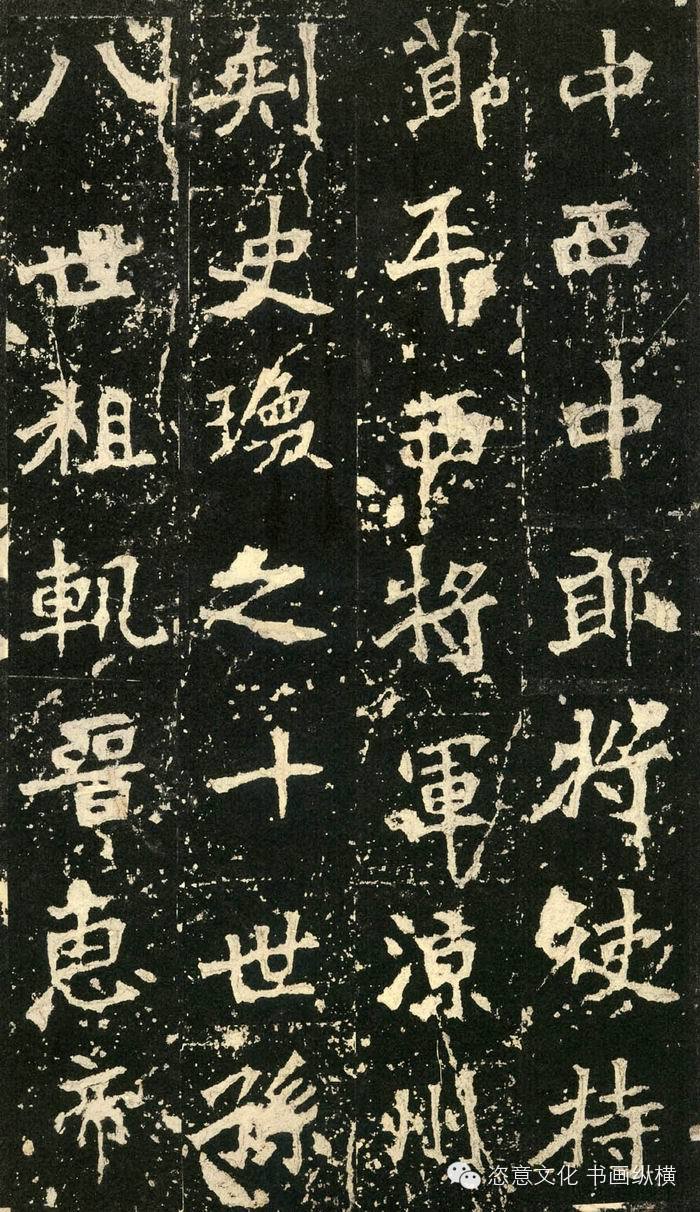 中西中郎將使持
節平西將軍涼州
刺史瑍之十世孫
八世祖軌晉惠帝
恣意文化 书画纵横